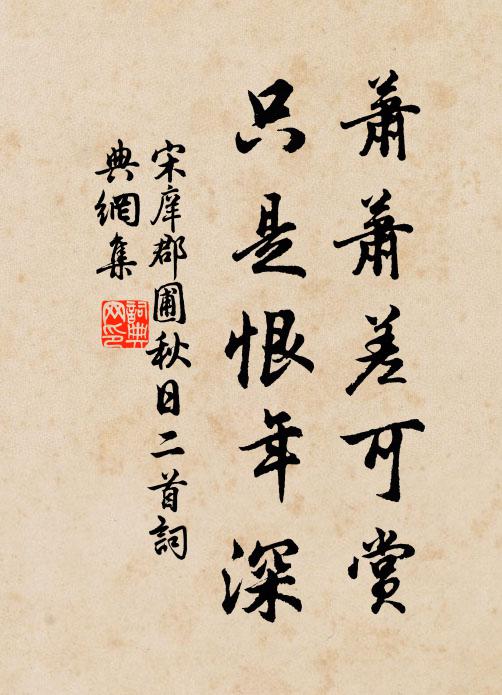 蕭蕭差可賞
只是恨年深
宋庠郡圃秋日二首詞
典網集
詞典
网印